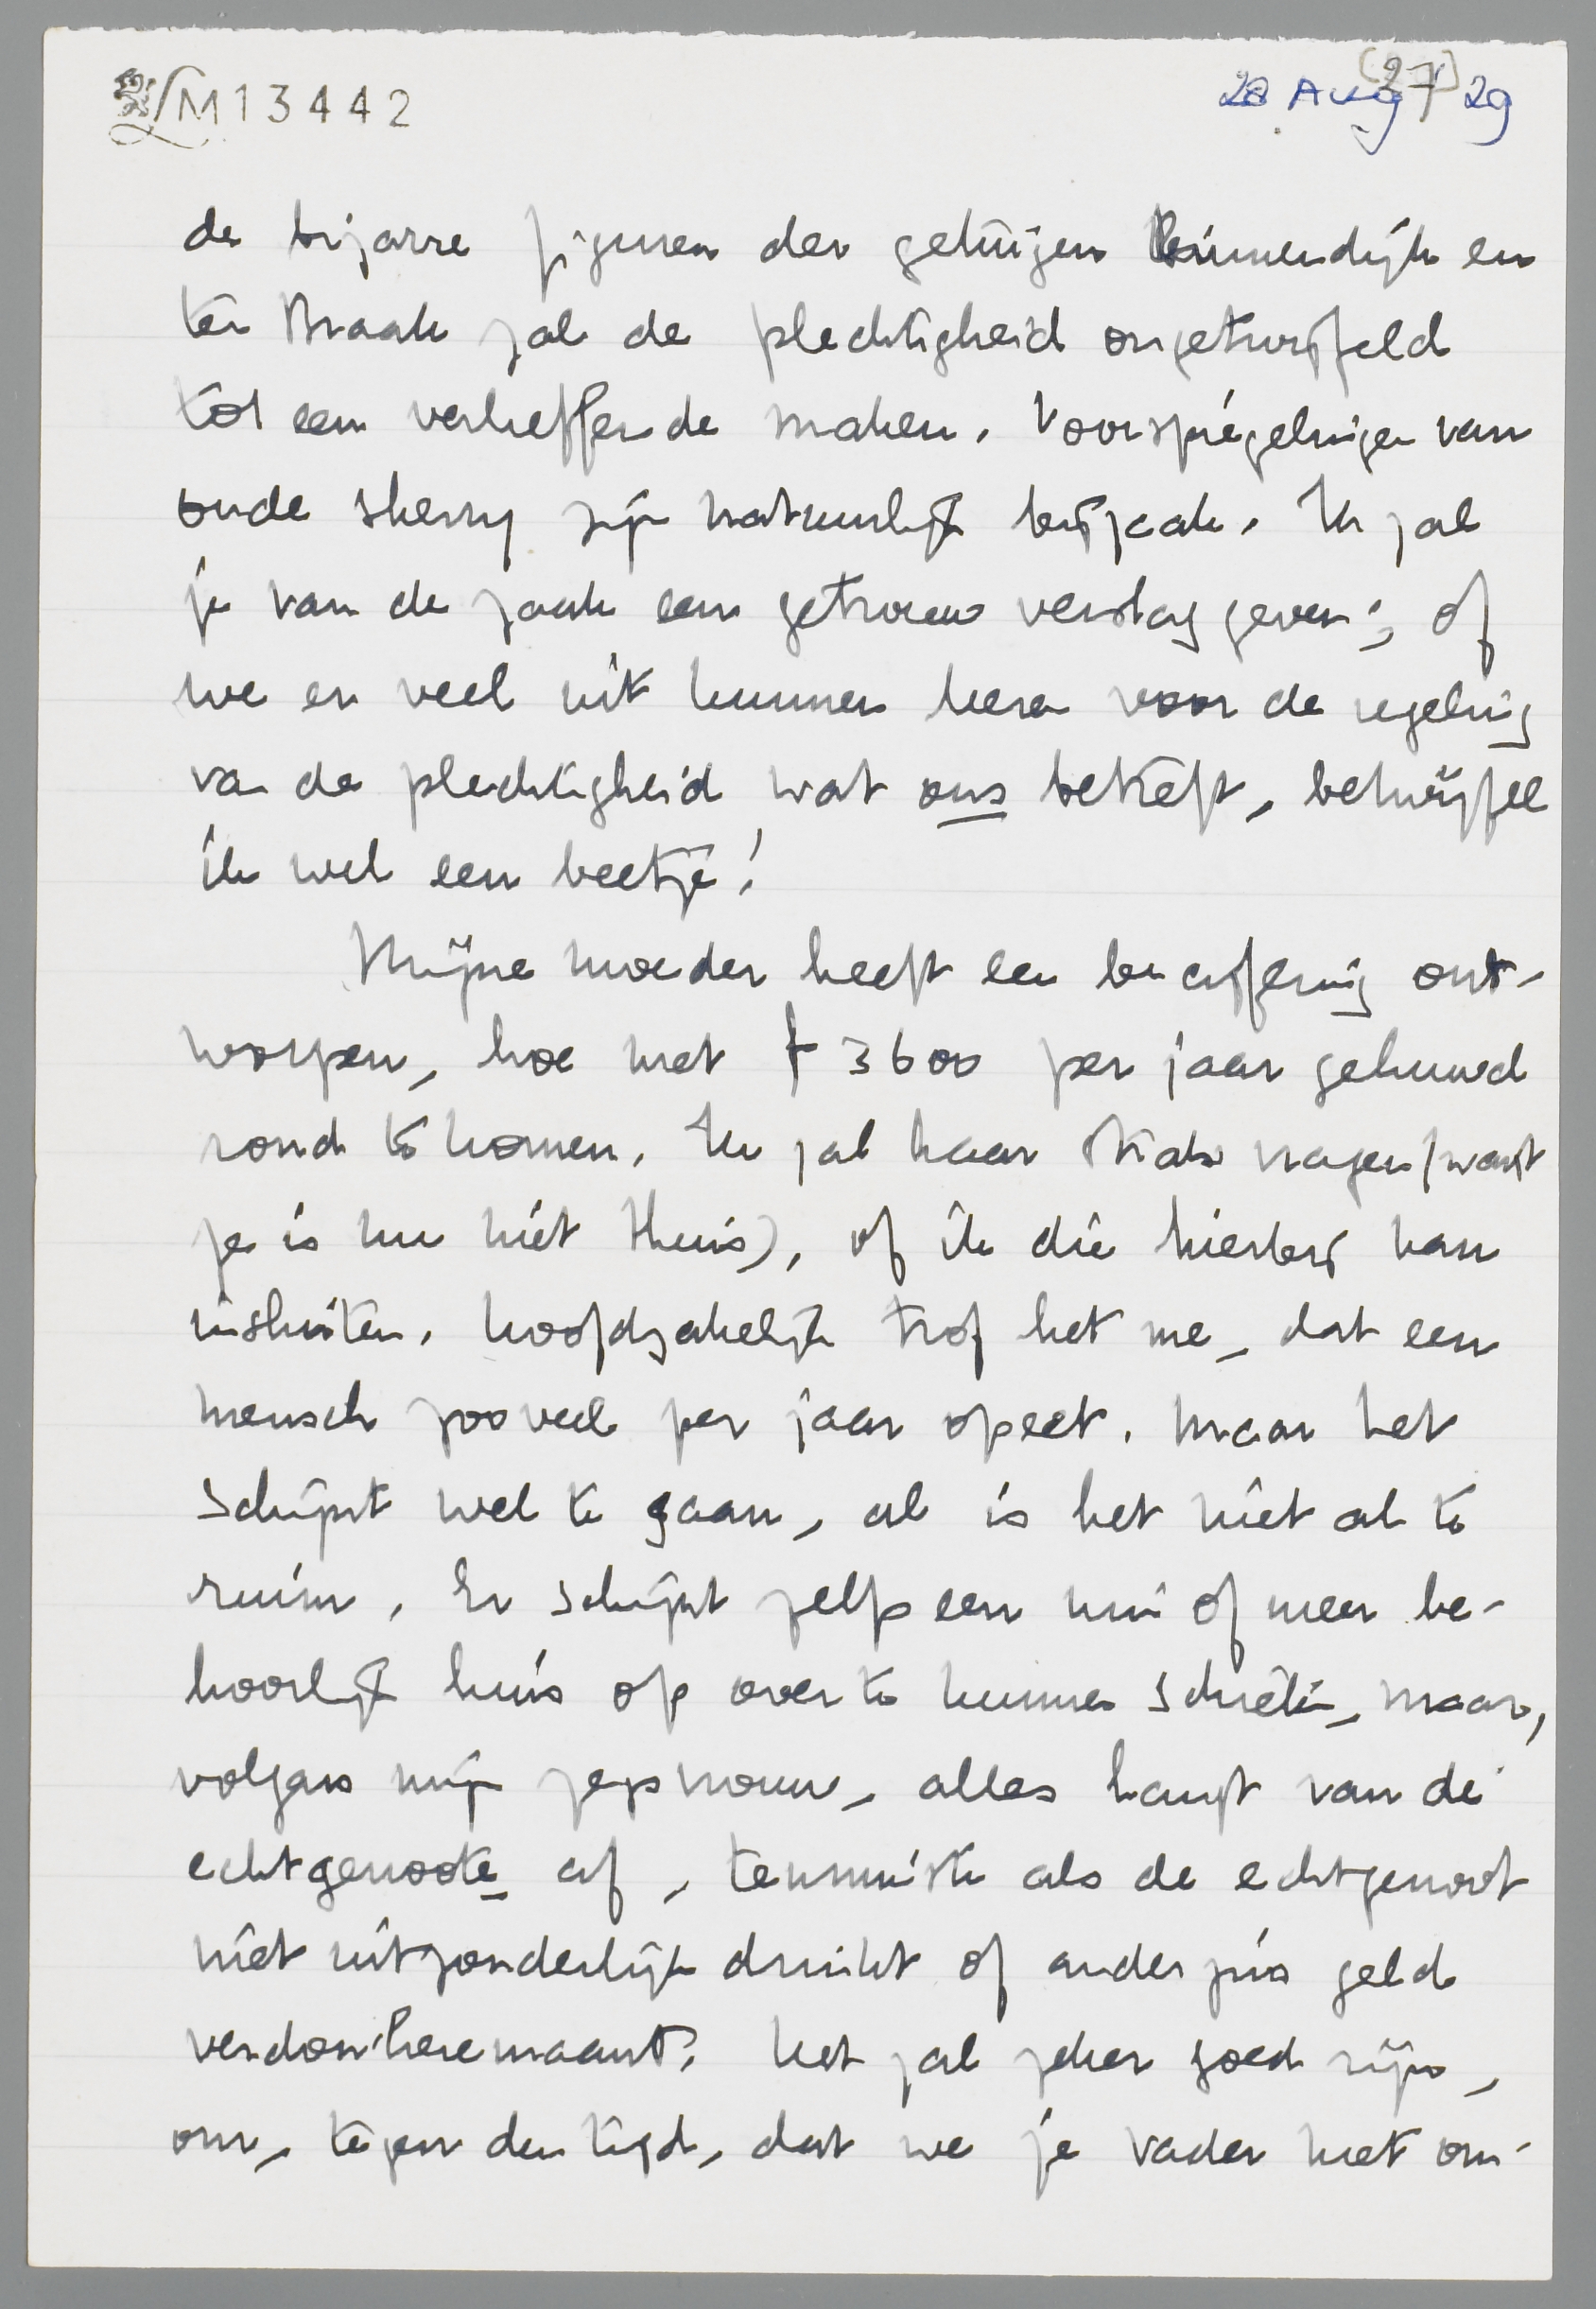 M13442
(27)
28 Aug '29
de bizarre figuren der getuigen Binnendijk en
ter Braak zal de plechtigheid ongetwijfeld
tot een verheffende maken. Voorspiegelingen van
oude sherry zijn natuurlijk bijzaak. Ik zal
je van de zaak een getrouw verslag geven; of
we er veel uit kunnen leren voor de regeling
van de plechtigheid wat ons betreft, betwijfel
ik wel een beetje!
Mijne moeder heeft een becijfering ont-
worpen, hoe met f 3600 per jaar gehuwd
rond te komen. Ik zal haar straks vragen (want
ze is nu niet thuis), of ik die hierbij kan
insluiten. Hoofdzakelijk trof het me, dat een
mensch zooveel per jaar opeet. Maar het
schijnt wel te gaan, al is het niet al te
ruim. Er schijnt zelfs een min of meer be-
hoorlijk huis op over te kunnen schieten, maar,
volgens mijn zegsvrouw, alles hangt van de
echtgenoote af, tenminste als de echtgenoot
niet uitzonderlijk drinkt of anderzins geld
verdonkeremaant. Het zal zeker goed zijn,
om, tegen den tijd, dat we je vader met on-